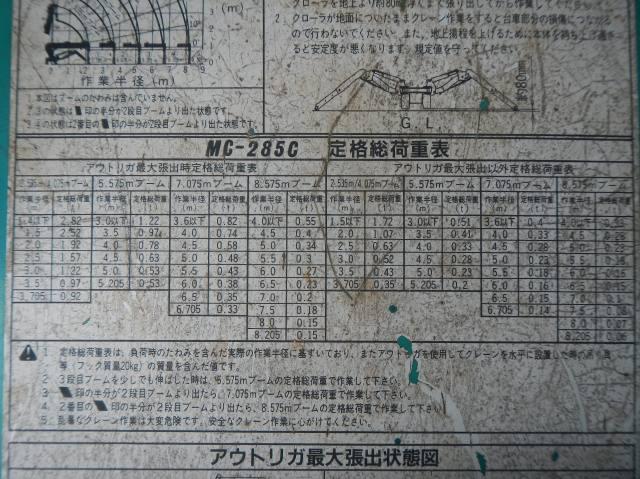 クローラを地上より約80mm浮くまで張り出してから作業してください。
2. クローラが地面についたままクレーン作業をすると台車部分の損傷につながる
ので行わないでください。また、地上揚程を上げるために本体を持ち上げ過ぎ
ると安定度が悪くなります。規定値を守ってください。
0 1 2 3 4 5 6 7 8 9
作業半径(m)
1.本図はブームのたわみは含んでいません。
印の半分が2段目ブームより出た状態です。
2番目の 印の半分が2段目ブームより出た状態です。
約80mm
G.L.
MC-285C 定格総荷重表
アウトリガ最大張出時定格総荷重表
アウトリガ最大張出以外定格総荷重表
2.535m/4.075mブーム 5.575mブーム 7.075mブーム 8.575mブーム 2.535m/4.075mブーム 5.575mブーム 7.075mブーム 8.575mブーム
作業半径(m) 定格総荷重(t) 作業半径(m) 定格総荷重(t) 作業半径(m) 定格総荷重(t) 作業半径(m) 定格総荷重(t) 作業半径(m) 定格総荷重(t) 作業半径(m) 定格総荷重(t) 作業半径(m) 定格総荷重(t) 作業半径(m)
1.4以下 2.82 3.0以下 1.22 3.6以下 0.82 4.0以下 0.55 1.5以下 1.72 3.0以下 0.51 3.6以下 0.4
1.5 2.52 3.5 0.97 4.0 0.74 4.5 0.4 2.0 1.07 3.5 0.41 4.0 0.33 4.5
2.0 1.92 4.0 0.78 4.5 0.58 5.0 0.34 2.5 0.63 4.0 0.33 4.5 0.28 5.0
2.5 1.57 4.5 0.63 5.0 0.48 5.5 0.3 3.0 0.52 4.5 0.28 5.0 0.23 5.5
3.0 1.22 5.0 0.53 5.5 0.43 6.0 0.27 3.5 0.43 5.0 0.23 5.5 0.18 6.0 0.16
3.5 0.97 5.205 0.53 6.0 0.38 6.5 0.23 3.705 0.35 5.205 0.2 6.0 0.16 6.5
3.705 0.92 6.5 0.35 7.0 0.2 6.5 0.15 7.0
6.705 0.33 7.5 0.18 6.705 0.14 7.5
8.0 0.15 8.0 0.07
8.205 0.15 8.205 0.06
1. 定格総荷重表は、負荷時のたわみを含んだ実際の作業半径に基ずいており、またアウトリガを使用してクレーンを水平に設置した時の
等(フック質量20kg)の質量を含んだ値です。
2. 3段目ブームを少しでも伸ばした時は、5.575mブームの定格総荷重で作業して下さい。
3. 印の半分が2段目ブームより出たら、7.075mブームの定格総荷重で作業して下さい。
4. 2番目の 印の半分が2段目ブームより出たら、8.575mブームの定格総荷重で作業して下さい。
5. なクレーン作業は大変危険です。安全なクレーン作業に心がけてください。
アウトリガ最大張出状態図